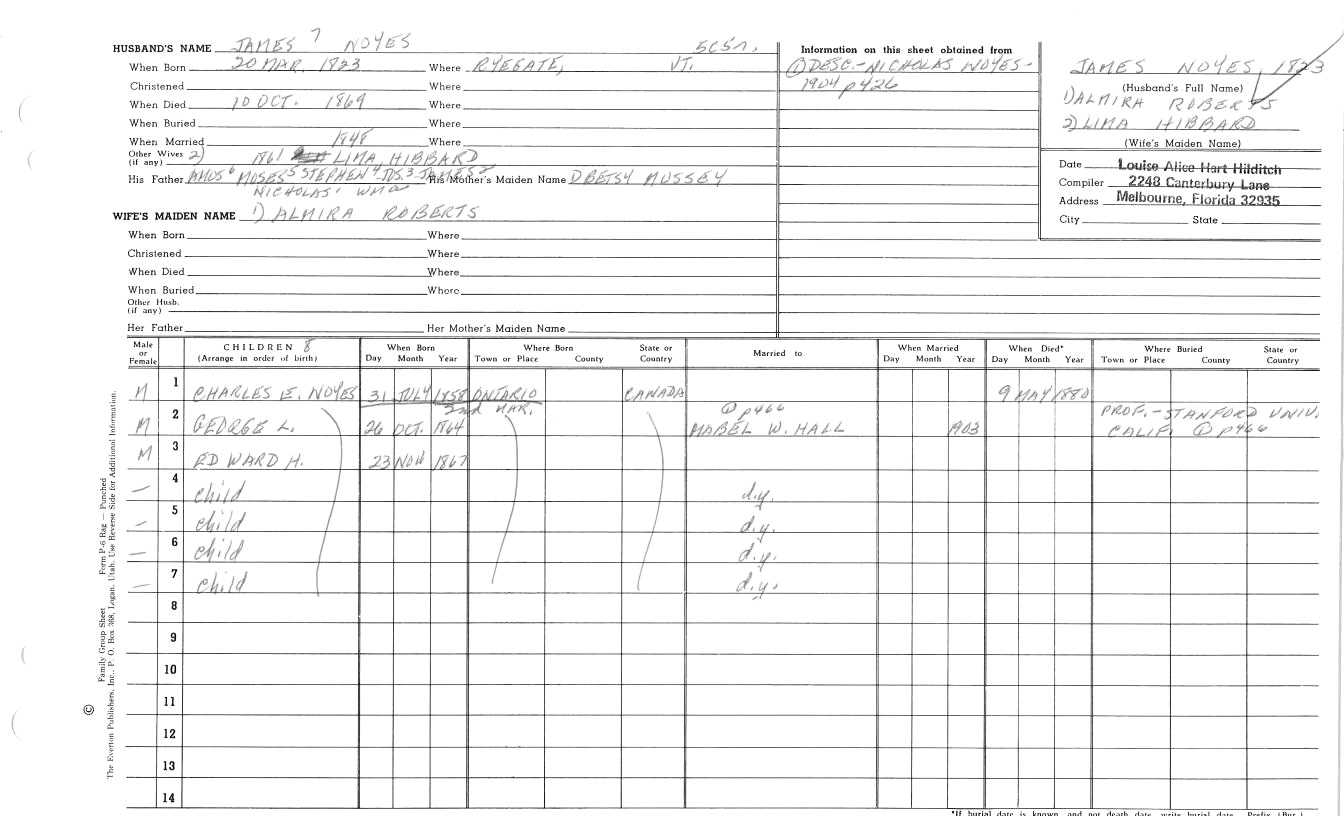 HUSBAND'S NAME JAMES 7 NOYES 5C5
When Born 20 MAR. 1823 Where RYEGATE, VT.
Christened Where
When Died 10 OCT. 1869 Where
When Buried Where
When Married 1848 Where
Other Wives (if any) 2) 1861 LIMA HIBBARD
His Father AMOS 6 MOSES 5 STEPHEN 4 JOS. 3 JAMES 2 His Mother's Maiden Name BETSY MUSSEY
NICHOLAS 1 WM
WIFE'S MAIDEN NAME 1) ALMIRA ROBERTS
When Born Where
Christened Where
When Died Where
When Buried Where
Other Husb. (if any)
Her Father Her Mother's Maiden Name
Information on this sheet obtained from
① DESC.-NICHOLAS NOYES-
1904 p426
JAMES NOYES, 1823
(Husband's Full Name)
1) ALMIRA ROBERTS
2) LIMA HIBBARD
(Wife's Maiden Name)
Date Louise Alice Hart Hilditch
Compiler 2248 Canterbury Lane
Address Melbourne, Florida 32935
City State
Male or Female CHILDREN 8 (Arrange in order of birth) When Born Day Month Year Where Born Town or Place County State or Country Married to When Married Day Month Year When Died* Day Month Year Where Buried Town or Place County State or Country
M 1 CHARLES E. NOYES 31 JULY 1858 ONTARIO CANADA 9 MAY 1880
2nd MAR.
M 2 GEORGE L. 26 OCT. 1864 ① p466 MABEL W. HALL 1903 PROF.-STANFORD UNIV. CALIF. ① p466
M 3 EDWARD H. 23 NOV 1867
— 4 child d.y.
— 5 child d.y.
— 6 child d.y.
— 7 child d.y.
8
9
10
11
12
13
14
*If burial date is known, and not death date, write burial date. Prefix (Bur.)
© Family Group Sheet Form P-6 Rag — Punched
The Everton Publishers, Inc., P. O. Box 368, Logan, Utah. Use Reverse Side for Additional Information.